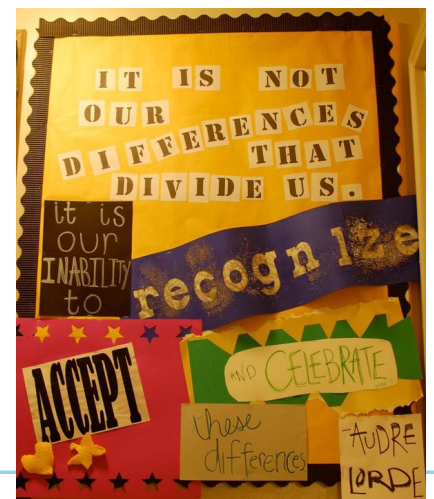 IT IS NOT
OUR
DIFFERENCES
THAT
DIVIDE US.
it is
our
INABILITY
to
recognize
ACCEPT
AND CELEBRATE
these
differences
-AUDRE
LORDE